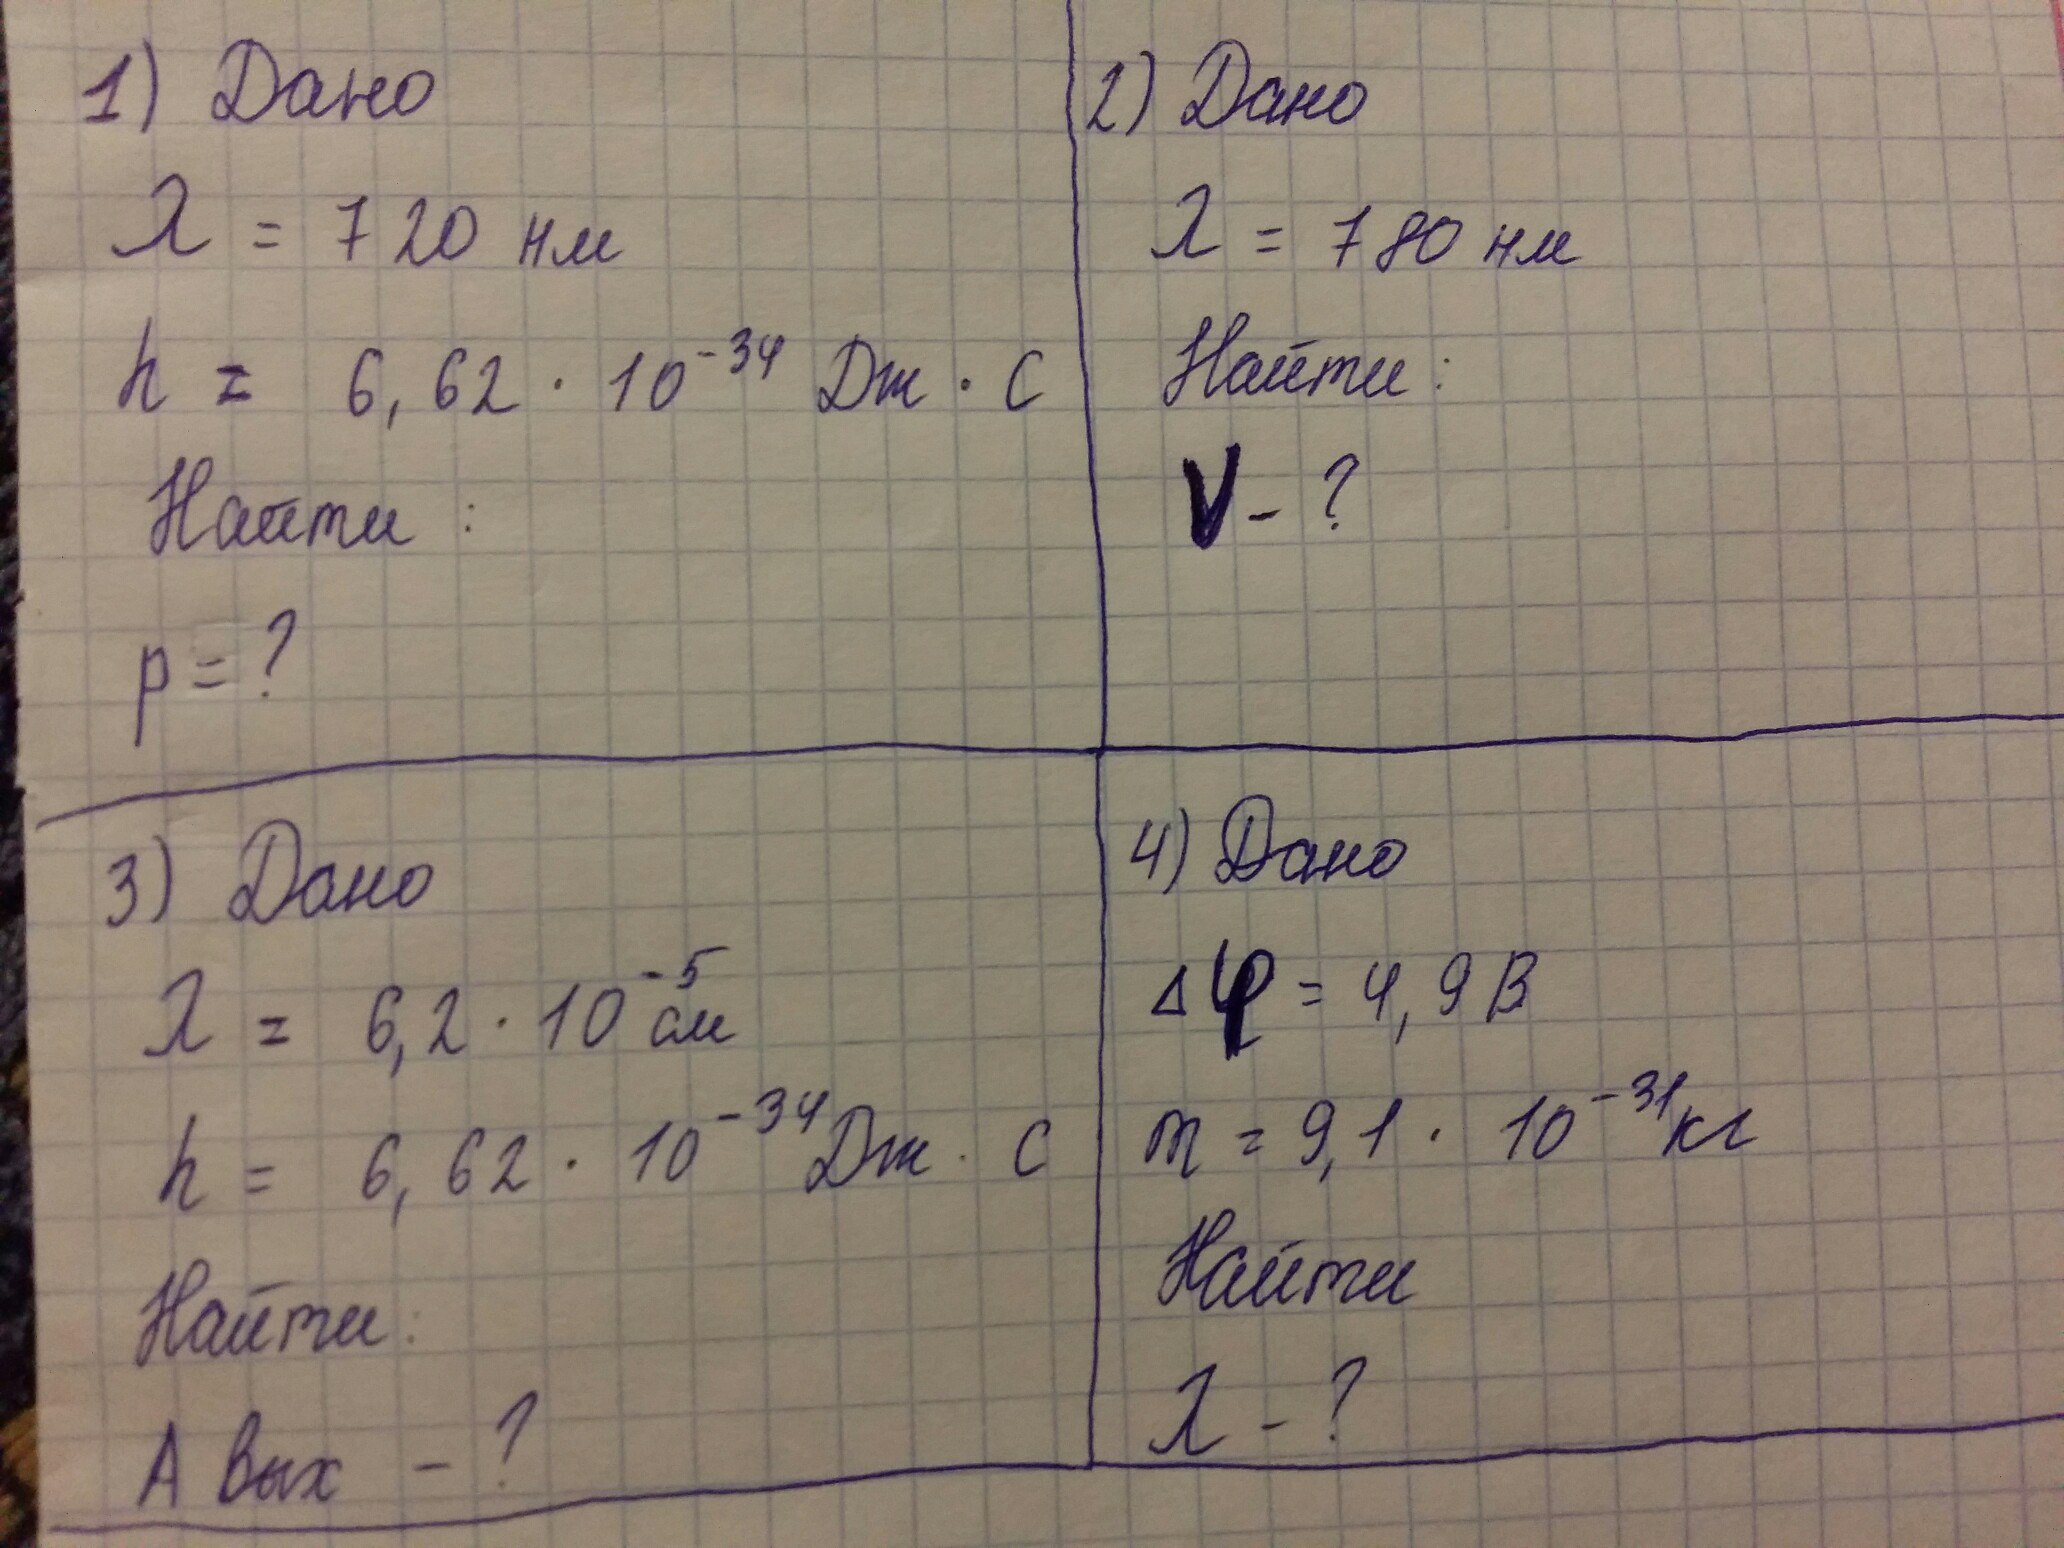 1) Дано
λ = 720 нм
h = 6,62 · 10⁻³⁴ Дж · С
Найти :
p = ?
2) Дано
λ = 780 нм
Найти :
V - ?
3) Дано
λ = 6,2 · 10⁻⁵ см
h = 6,62 · 10⁻³⁴ Дж · С
Найти :
А вых - ?
4) Дано
Δφ = 4,9 В
m = 9,1 · 10⁻³¹ кг
Найти
λ - ?